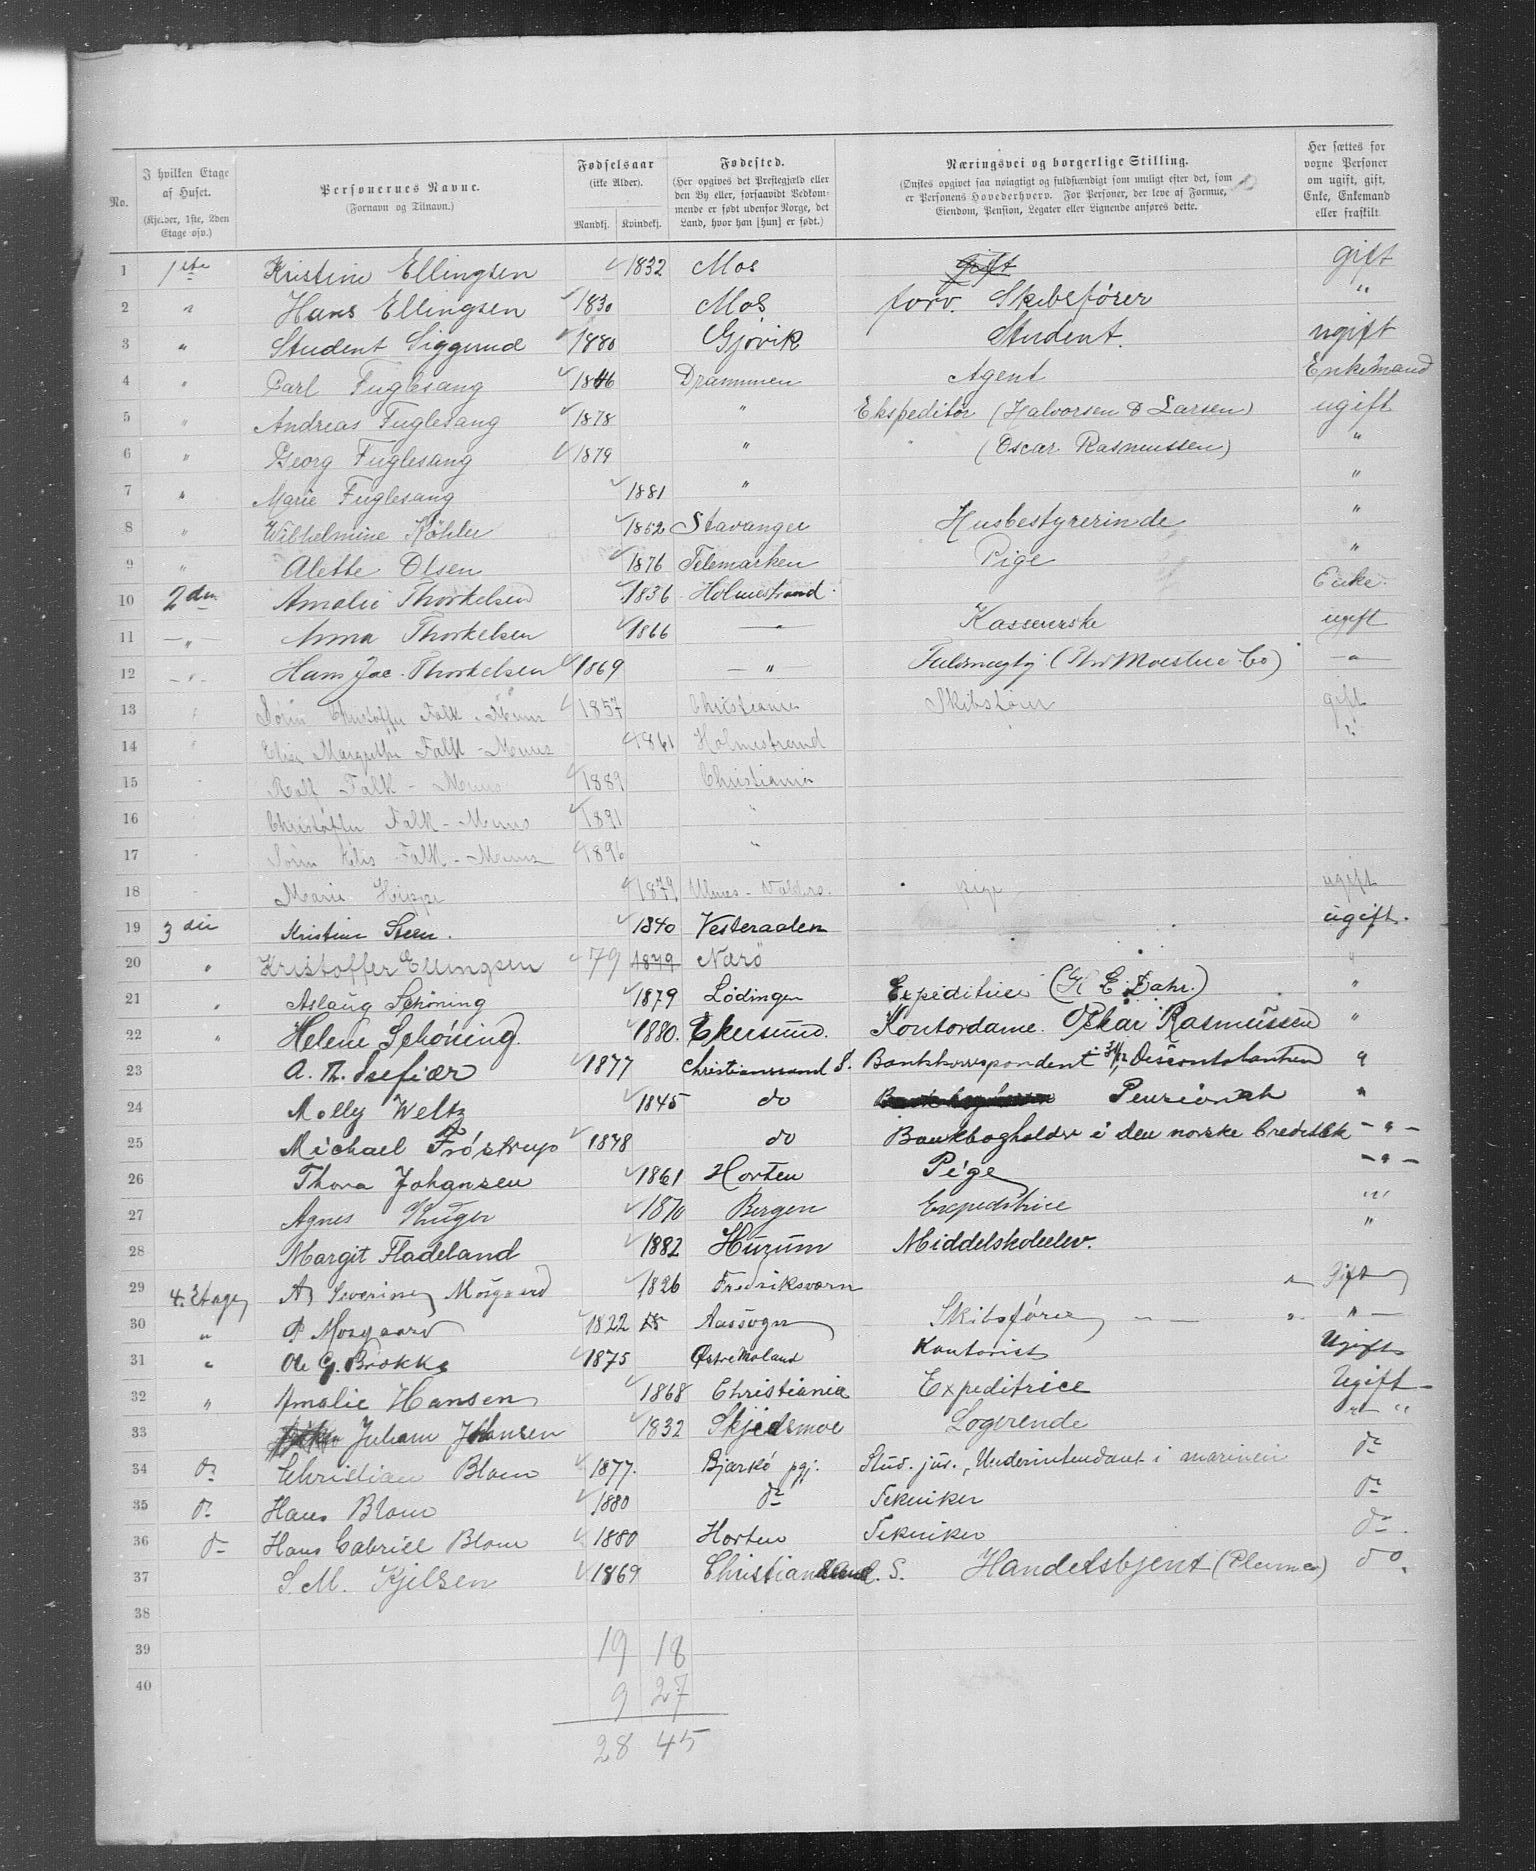 No. I hvilken Etage af Huset. (Kjelder, 1ste, 2den Etage osv.) Personernes Navne. (Fornavn og Tilnavn.) Fødselsaar (ikke Alder). Mandkj. Kvindekj. Fødested. (Her opgives det Prestegjæld eller den By eller, forsaavidt Vedkommende er født udenfor Norge, det Land, hvor han [hun] er født.) Næringsvei og borgerlige Stilling. (Ønskes opgivet saa nøiagtigt og fuldstændigt som muligt efter det, som er Personens Hovederhverv. For Personer, der leve af Formue, Eiendom, Pension, Legater eller Lignende anføres dette. Her sættes for voxne Personer om ugift, gift, Enke, Enkemand eller fraskilt
1 1ste Kristine Ellingsen 1832 Mos gift gift
2 " Hans Ellingsen 1830 Mos forv. Skibsfører "
3 " Student Siggurd 1880 Gjøvik Student. ugift
4 " Carl Fuglesang 1846 Drammen Agent Enkemand
5 " Andreas Fuglesang 1878 " Ekspeditør (Halvorsen & Larsen) ugift
6 " Georg Fuglesang 1879 " " (Oscar Rasmussen) "
7 " Marie Fuglesang 1881 " "
8 " Wilhelmine Köhler 1862 Stavanger Husbestyrerinde "
9 " Alette Olsen 1876 Telemarken Pige "
10 2den Amalie Thorkelsen 1836 Holmestrand Enke.
11 " Anna Thorkelsen 1866 " Kasserske ugift
12 " Hans Jac. Thorkelsen 1869 " Fuldmægtig (Moestue Co) "
13 " Christoffer Falk - 1857 Christiania gift
14 " Margrethe Falk - 1861 Holmestrand "
15 Rolf Falk - 1889 Christiania
16 Christoffer Falk - 1891 "
17 Falk - 1896 "
18 Marie 1879 Ulnes - Valders. pige ugift
19 3die Kristine Steen. 1840 Vesteraalen ugift.
20 " Kristoffer Ellingsen 79 1879 Nærö "
21 " Aslaug Schöning 1879 Lödingen Expeditrice (E. Dahr.) "
22 " Helene Schöning. 1880. Ekersund. Kontordame. Oskar Rasmussen "
23 A. Th. 1877 Christianssand S. Bankkorrespondent i Discontobanken "
24 Molly Weltz 1845 do Pensionat "
25 Michael Frøstrup 1878 do Bankbogholder i den norske Creditbk - " -
26 Thora Johansen 1861 Horten Pige - " -
27 Agnes 1870 Bergen Expeditrice " "
28 Margit Fladeland 1882 Hurum Middelskoleelev. "
29 4. Etage Severine Mosgaard 1826 Fredriksværn " Gift
30 " P Mosgaard 1822 Aassogn Skibsfører " "
31 " Ole G. Brokke 1875 Østre Moland Kontorist Ugift
32 " Amalie Hansen 1868 Christiania Expeditrice Ugift
33 Juliane Johansen 1832 Skjedsmoe Logerende " "
34 do Christian Blom 1877. Bjarkö pgj. Stud. jur., Underintendant i marinen do
35 do Hans Blom 1880 do Tekniker do
36 do Hans Gabriel Blom 1880 Horten Tekniker do
37 S. M. Kjelsen 1869 Christianssand. S. Handelsbjent do.
38
39 19 18
40 9 27
28 45